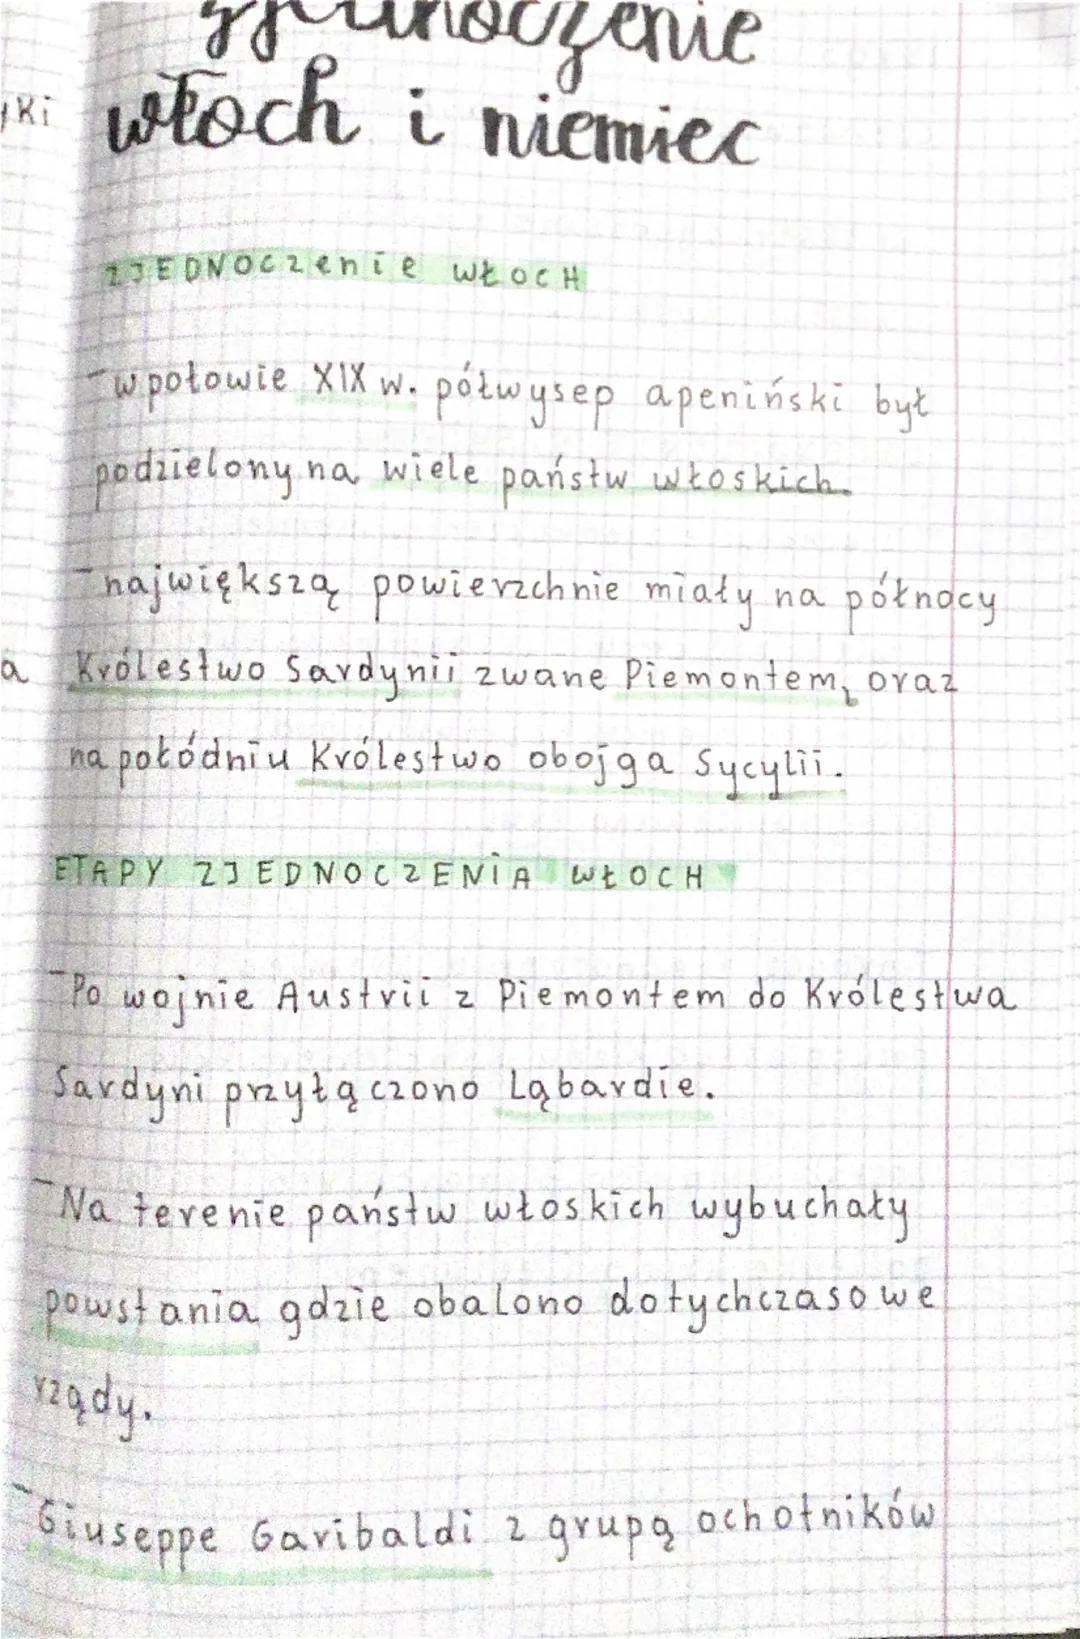 włoch i niemiec
yki
ZJEDNOCZenie WŁOCH
- w połowie XIX w. półwysep apeniński był
podzielony na wiele państw włoskich.
- największą powierzchnie miały na północy
a
Królestwo Sardynii zwane Piemontem, oraz
na połódniu Królestwo obojga Sycylii.
ETAPY ZJEDNOCZENIA WŁOCH
- Po wojnie Austrii z Piemontem do Królestwa
Sardyni przyłączono Ląbardie.
- Na terenie państw włoskich wybuchały
powstania gdzie obalono dotychczasowe
rządy.
- Giuseppe Garibaldi z grupą ochotników